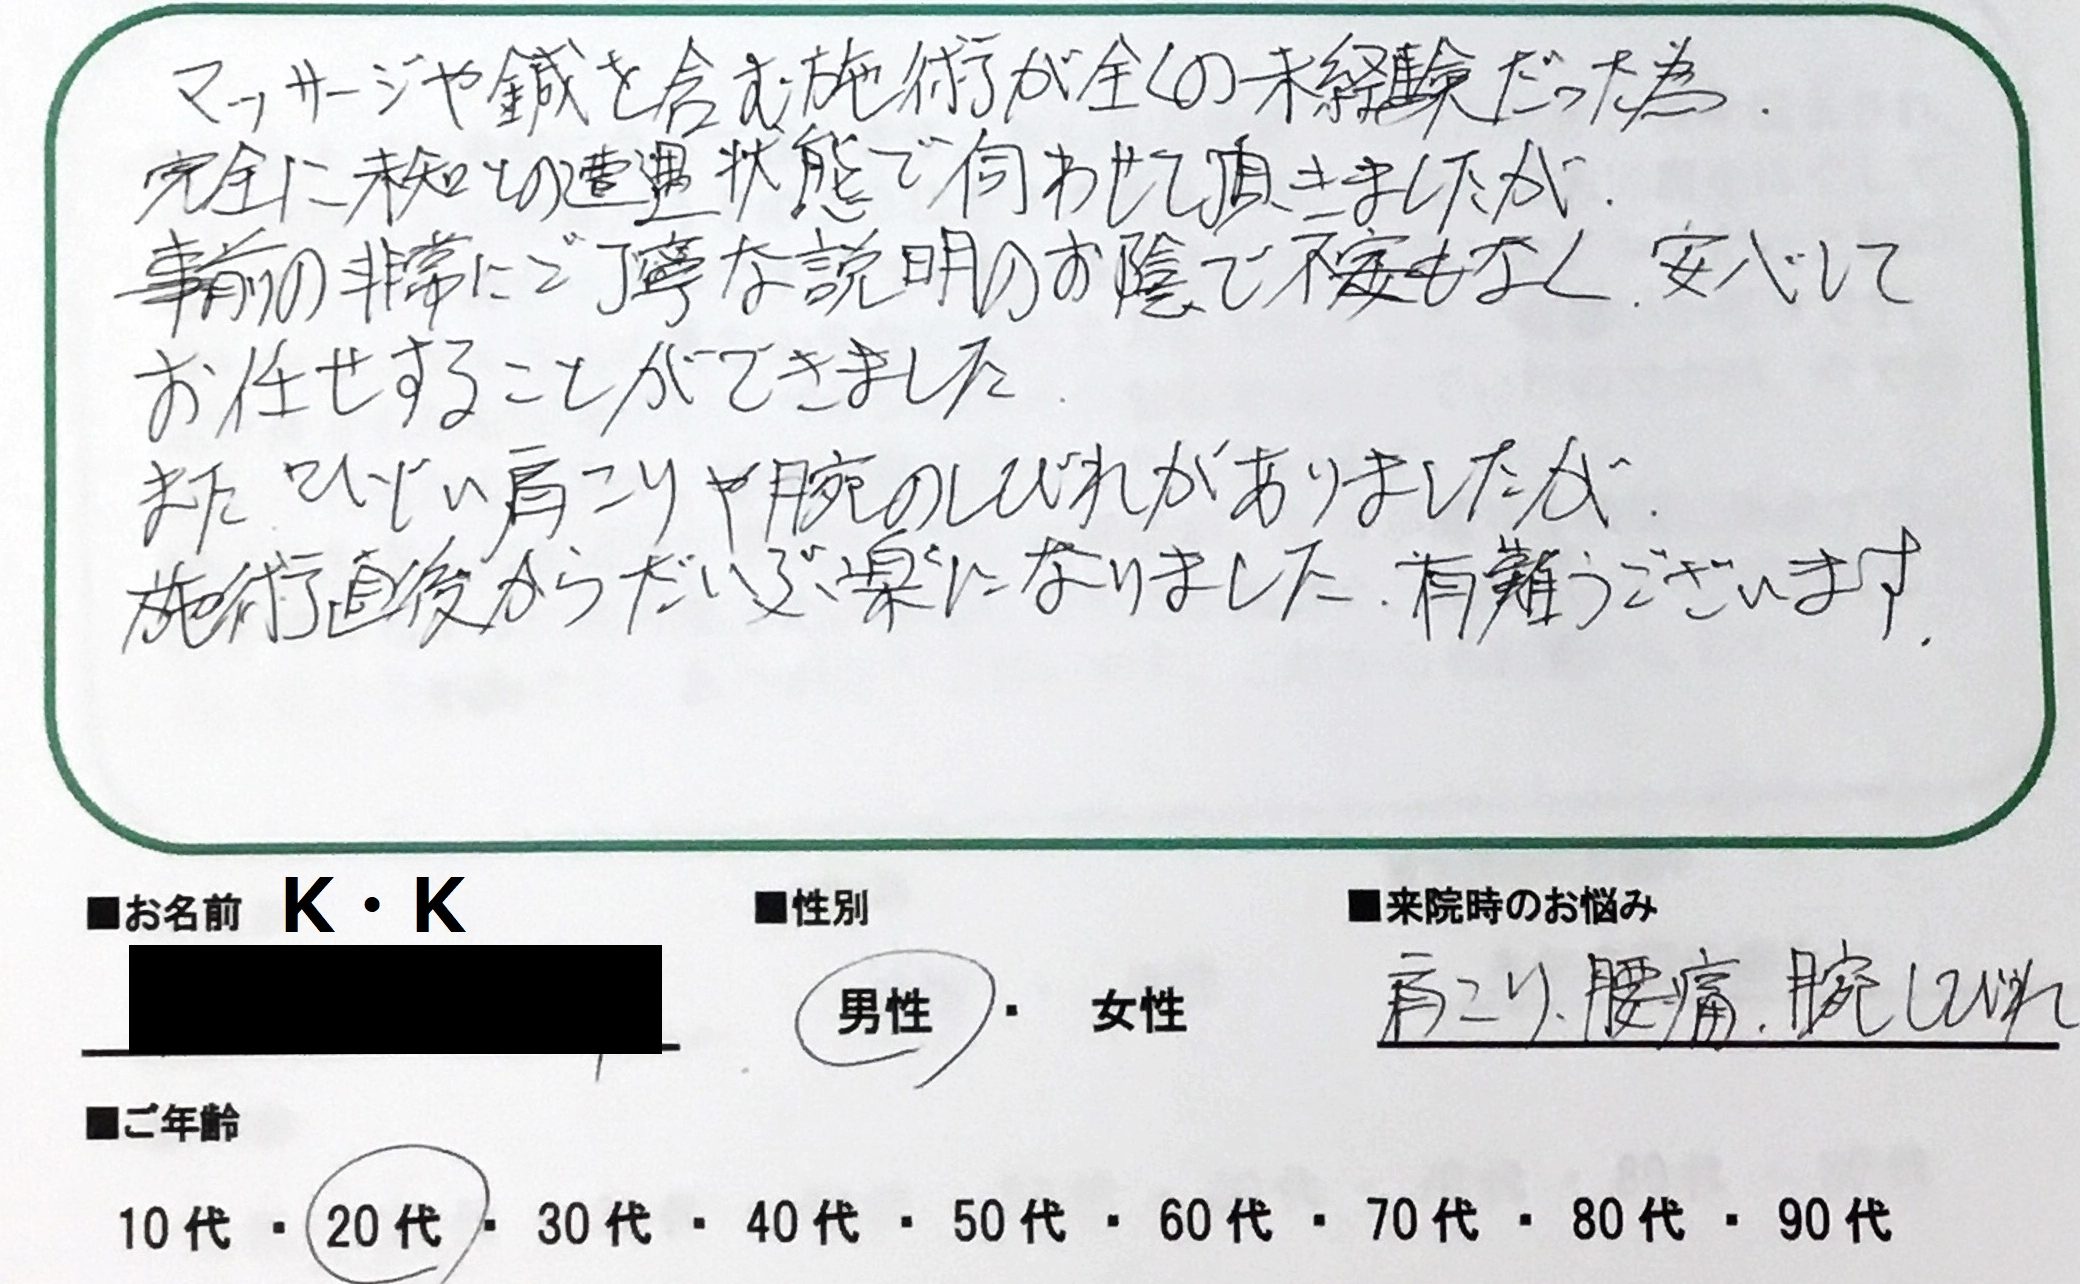 マッサージや鍼を含む施術が全くの未経験だった為、
完全に未知との遭遇状態で伺わせて頂きましたが、
事前の非常にご丁寧な説明のお陰で不安もなく、安心して
お任せすることができました。
また、ひどい肩こりや腕のしびれがありましたが、
施術直後からだいぶ楽になりました。有難うございます。
■お名前 K・K ■性別 ■来院時のお悩み
男性 ・ 女性 肩こり、腰痛、腕しびれ
■ご年齢
10代 ・ 20代 ・ 30代 ・ 40代 ・ 50代 ・ 60代 ・ 70代 ・ 80代 ・ 90代